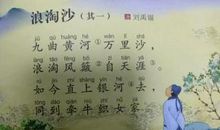 浪淘沙（其一） 刘禹锡
jiǔ qū huáng hé wàn lǐ shā
九曲黄河①万里沙，
làng táo fēng bǒ zì tiān yá
浪淘风簸②自天涯③。
rú jīn zhí shàng yín hé qù
如今直上银河去，
tóng dào qiān niú zhī nǚ jiā
同到牵牛织女家。